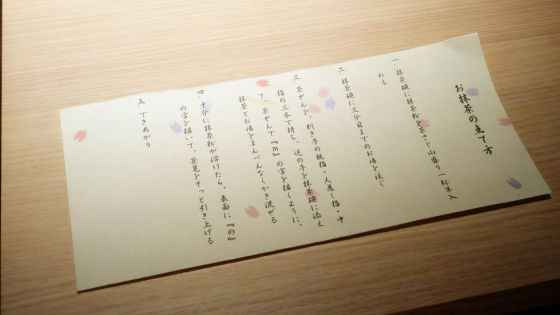 お抹茶の点て方
一 抹茶碗に抹茶粉を茶さじ山盛り一杯半入
れる
二 抹茶碗に三分目までのお湯を注ぐ
三 茶せんを、利き手の親指・人差し指・中
指の三本で持ち、逆の手を抹茶碗に添え
て、茶せんで『m』の字を描くように、
抹茶とお湯をまんべんなくかき混ぜる
四 十分に抹茶粉が溶けたら、表面に『の』
の字を描いて、茶筅をそっと引き上げる
五 できあがり